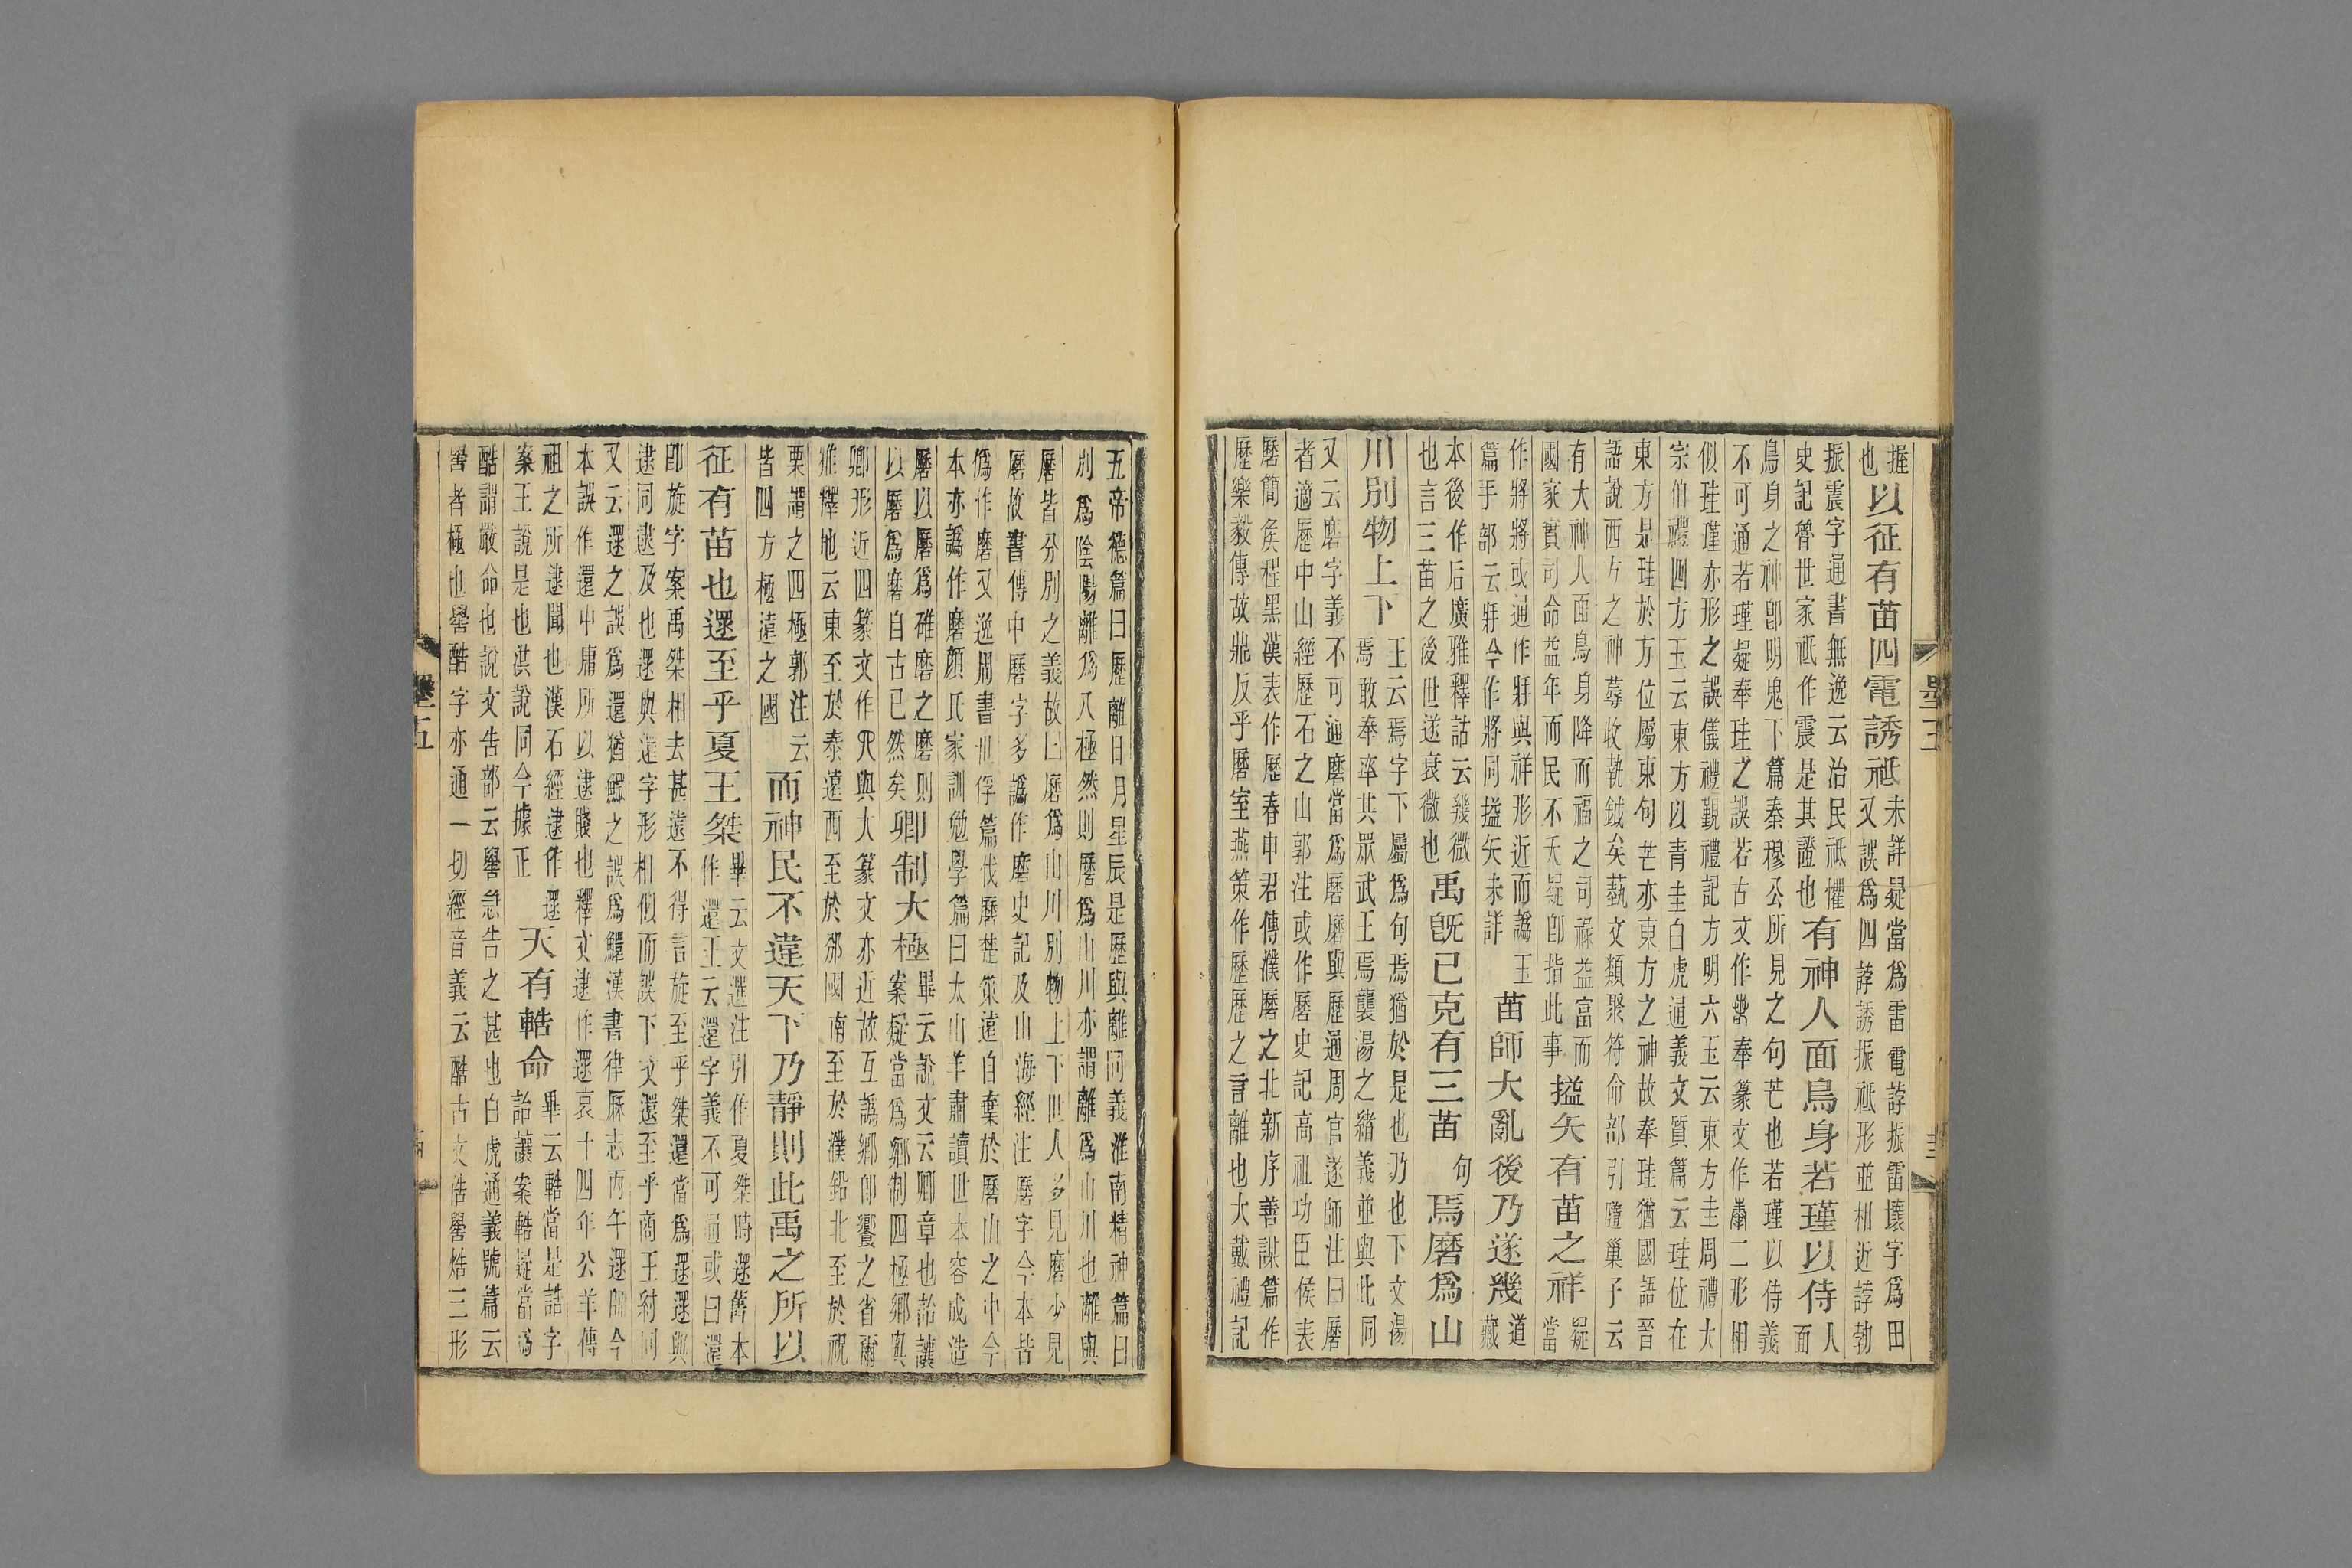 握也以征有苗四電誘祗未詳疑當爲雷電誖振雷壞字爲田
又誤爲四誖誘振祗形並相近誖勃
振震字通書無逸云治民祗懼
史記魯世家祗作震是其證也有神人面鳥身若瑾以侍人面
鳥身之神卽明鬼下篇秦穆公所見之句芒也若瑾以侍義
不可通若瑾疑奉珪之誤若古文作奉篆文作二形相
似珪瑾亦形之誤儀禮覲禮記方明六玉云東方圭周禮大
宗伯禮四方玉云東方以青圭白虎通義文質篇云珪位在
東方是珪於方位屬東句芒亦東方之神故奉珪猶國語晉
語說西方之神蓐收執鉞矣藝文類聚符命部引隨巢子云
有大神人面鳥身降而福之司祿益富而
國家實司命益年而民不夭疑卽指此事搤矢有苗之祥疑當
作將將或通作牂與祥形近而譌玉
篇手部云牂今作將同搤矢未詳苗師大亂後乃遂幾道藏
本後作后廣雅釋詁云幾微
也言三苗之後世遂衰微也禹旣已克有三苗句焉磨爲山
川別物上下王云焉字下屬爲句焉猶於是也乃也下文湯
焉敢奉率其眾武王焉襲湯之緒義並與此同
又云磨字義不可通磨當爲磿磿與歷通周官遂師注曰磿
者適歷中山經歷石之山郭注或作磿史記高祖功臣侯表
磿簡矦程黑漢表作歷春申君傳濮磿之北新序善謀篇作
歷樂毅傳故鼎反乎磿室燕策作歷歷之言離也大戴禮記
五帝德篇曰歷離日月星辰是歷與離同義淮南精神篇曰
別爲陰陽離爲八極然則磿爲山川亦謂離爲山川也離與
磿皆分別之義故曰磿爲山川別物上下世人多見磨少見
磿故書傳中磿字多譌作磨史記及山海經注磿字今本皆
僞作磨又逸周書世俘篇伐磿楚策遠自棄於磿山之中今
本亦譌作磨顏氏家訓勉學篇曰太山羊肅讀世本容成造
磿以磿爲碓磨之磨則
以磨爲磿自古已然矣卿制大極畢云說文云卿章也詒讓
案疑當爲鄉制四極鄉與
卿形近四篆文作與大篆文亦近故互譌鄉卽饗之省爾
雅釋地云東至於泰遠西至於邠國南至於濮鉛北至於祝
栗謂之四極郭注云
皆四方極遠之國而神民不違天下乃靜則此禹之所以
征有苗也還至乎夏王桀畢云文選注引作夏桀時還舊本
作還王云還字義不可通或曰還
卽旋字案禹桀相去甚遠不得言旋至乎桀還當爲遝遝與
逮同逮及也遝與還字形相似而誤下文還至乎商王紂同
又云遝之誤爲還猶鰥之誤爲鱞漢書律厤志丙午遝師今
本誤作還中庸所以逮賤也釋文逮作遝哀十四年公羊傳
祖之所逮聞也漢石經逮作遝
案王說是也洪說同今據正天有䡘命畢云䡘當是誥字
詒讓案䡘疑當爲
酷謂嚴命也說文吿部云嚳急吿之甚也白虎通義號篇云
嚳者極也嚳酷字亦通一切經音義云酷古文俈嚳焅三形